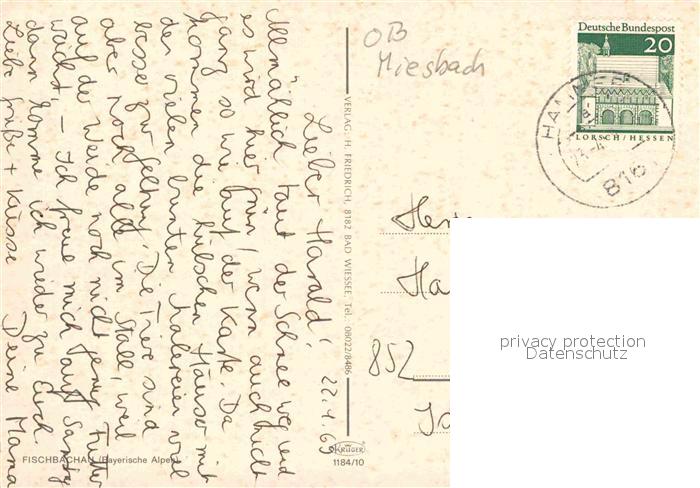 Lieber Harald! 22.4.69
Allmählich taut der Schnee weg und
es wird hier grün, wenn auch nicht
ganz so wie auf der Karte. Da
kommen die hübschen Häuser mit
den vielen bunten Malereien viel
besser zur Geltung. Die Tiere sind
aber noch alle im Stall, weil
auf der Weide noch nicht genug Futter
wächst. – Ich freue mich auf Samstag
dann komme ich wieder zu Euch.
Liebe Grüße + Küsse Deine Mama
FISCHBACHAU (Bayerische Alpen)
VERLAG: H. FRIEDRICH, 8182 BAD WIESSEE, Tel.: 08022/8486
KRÜGER
1184/10
OB
Miesbach
Deutsche Bundespost
20
LORSCH/HESSEN
816
Ha
852
privacy protection
Datenschutz